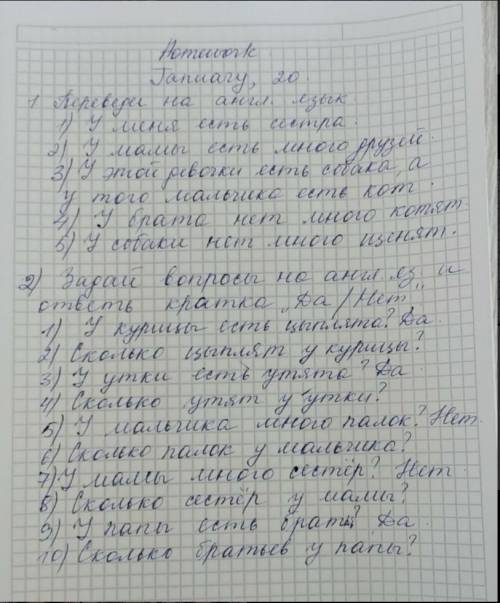 Homework
January, 20.
1 Переведи на англ. язык
1) У меня есть сестра.
2) У мамы есть много друзей.
3) У этой девочки есть собака, а
у того мальчика есть кот.
4) У брата нет много котят
5) У собаки нет много щенят.
2) Задай вопросы на англ. яз. и
ответь кратка „Да/Нет"
1) У курицы есть цыплята? Да.
2) Сколько цыплят у курицы?
3) У утки есть утята? Да
4) Сколько утят у утки?
5) У мальчика много палок? Нет.
6) Сколько палок у мальчика?
7) У мамы много сестёр? Нет.
8) Сколько сестёр у мамы?
9) У папы есть брат? Да.
10) Сколько братьев у папы?